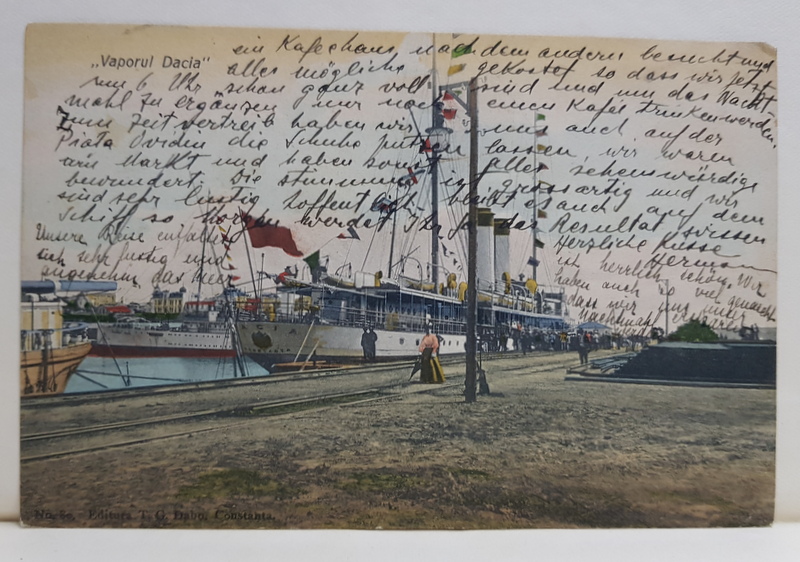 „Vaporul Dacia"
ein Kafeehaus nach dem andern besucht und
alles mögliche gekostet so dass wir jetzt
um 6 Uhr schon ganz voll sind und um das Nacht
mahl zu ergänzen nur noch einen Kafe trinken werden.
Zum Zeitvertreib haben wir uns auch auf der
Piata Ovidiu die Schuhe putzen lassen, wir waren
am Markt und haben sonst alles sehenswürdige
bewundert. Die Stimmung ist grossartig und wir
sind sehr lustig hoffentlich bleibt es auch auf dem
Schiff so. Morgen werdet Ihr ja das Resultat wissen
Herzliche Küsse
Hermann
Unsere Reise entfaltet
sich sehr lustig und
angenehm, das Meer
ist herrlich schön. Wir
haben auch so viel genascht
dass wir nur unter
Nachtmahl
No. - Editura T. G. Dabo, Constanta.